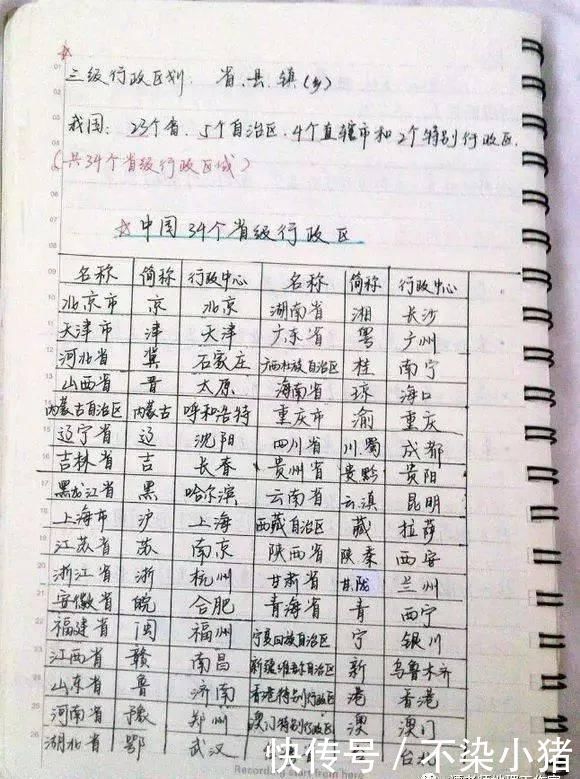 三级行政区划:省、县、镇(乡)
我国:23个省、5个自治区、4个直辖市和2个特别行政区.
(共34个省级行政区域)
☆中国34个省级行政区
名称 简称 行政中心 名称 简称 行政中心
北京市 京 北京 湖南省 湘 长沙
天津市 津 天津 广东省 粤 广州
河北省 冀 石家庄 广西壮族自治区 桂 南宁
山西省 晋 太原 海南省 琼 海口
内蒙古自治区 内蒙古 呼和浩特 重庆市 渝 重庆
辽宁省 辽 沈阳 四川省 川.蜀 成都
吉林省 吉 长春 贵州省 贵黔 贵阳
黑龙江省 黑 哈尔滨 云南省 云.滇 昆明
上海市 沪 上海 西藏自治区 藏 拉萨
江苏省 苏 南京 陕西省 陕.秦 西安
浙江省 浙 杭州 甘肃省 甘.陇 兰州
安徽省 皖 合肥 青海省 青 西宁
福建省 闽 福州 宁夏回族自治区 宁 银川
江西省 赣 南昌 新疆维吾尔自治区 新 乌鲁木齐
山东省 鲁 济南 香港特别行政区 港 香港
河南省 豫 郑州 澳门特别行政区 澳 澳门
湖北省 鄂 武汉 台
快传号/不染小猪
Recording start from here